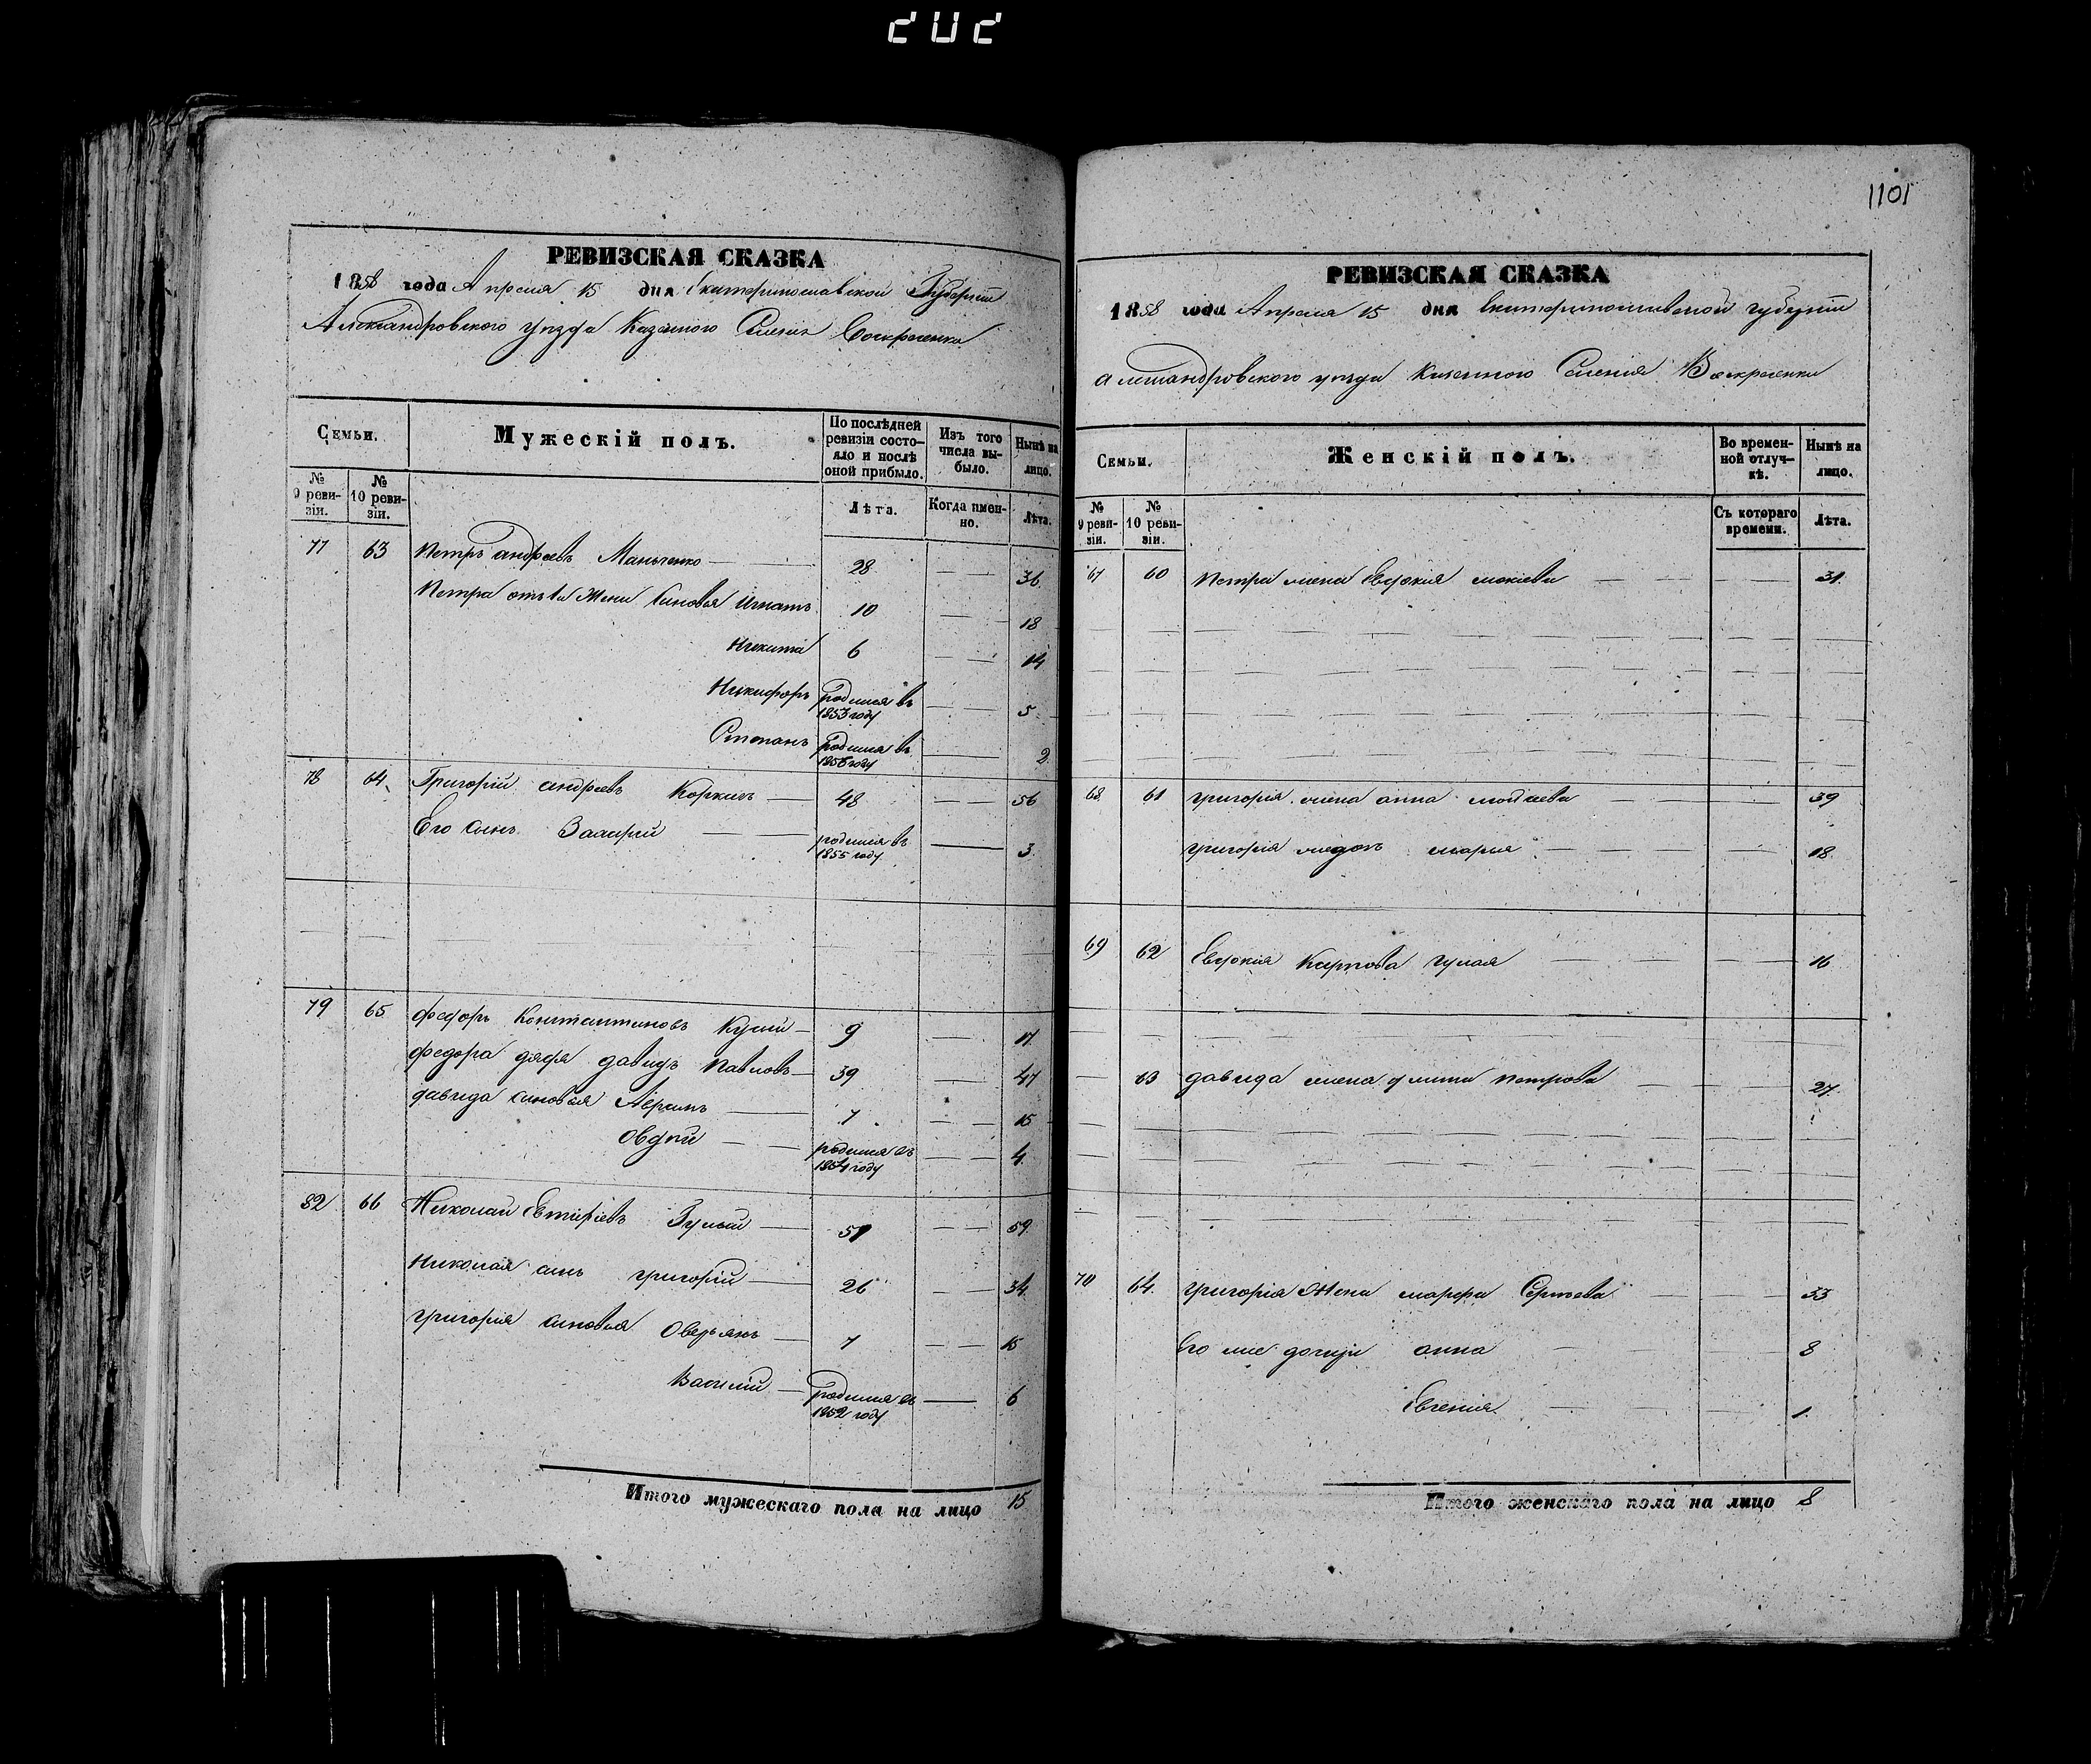 202
1101
РЕВИЗСКАЯ СКАЗКА
1858 года Апреля 15 дня Екатеринославской Губернiи
Александровского уезда Казенного Селенiя Воскресенки
Семьи.
Мужескiй полъ.
По послѣдней ревизiи состояло и послѣ оной прибыло.
Изъ того числа выбыло.
Нынѣ на лицо.
№ 9 ревизiи.
№ 10 ревизiи.
Лѣта.
Когда именно.
Лѣта.
77 63 Петръ андреевъ — 28 — 36
Петра сыновья Игнатъ 10 — 18
Никита 6 — 14
Никифоръ родился въ 1853 году — 5
Степанъ родился въ 1856 году — 2
78 64 Григорiй андреевъ — 48 — 56
Его сынъ Валирiй — родился въ 1855 году — 3
79 65 федоръ Константиновъ — 9 — 17
федора дядя давидъ Павловъ — 39 — 47
давида сыновья — 7 — 15
Овдѣй — родился въ 1854 году — 4
82 66 Николай Гулый — 51 — 59
Николая сынъ григорiй — 26 — 34
григорiя сыновья Оверьянъ — 7 — 15
Василiй — родился въ 1852 году — 6
Итого мужескаго пола на лицо 15
РЕВИЗСКАЯ СКАЗКА
1858 года Апреля 15 дня Екатеринославской губернiи
александровского уезда Казенного Селенiя Воскресенки
Семьи.
Женскiй полъ.
Во временной отлучкѣ.
Нынѣ на лицо.
№ 9 ревизiи.
№ 10 ревизiи.
Съ котораго времени.
Лѣта.
67 60 Петра жена Евдокия — 31
68 61 григорiя жена анна — 39
григорiя мария — 18
69 62 Евдокiя Карпова гулая — 16
63 давида жена Петрова — 27
70 64 григорiя жена марфа Сергѣева — 33
Его же дочери анна — 8
Евгения — 1
Итого женскаго пола на лицо 8